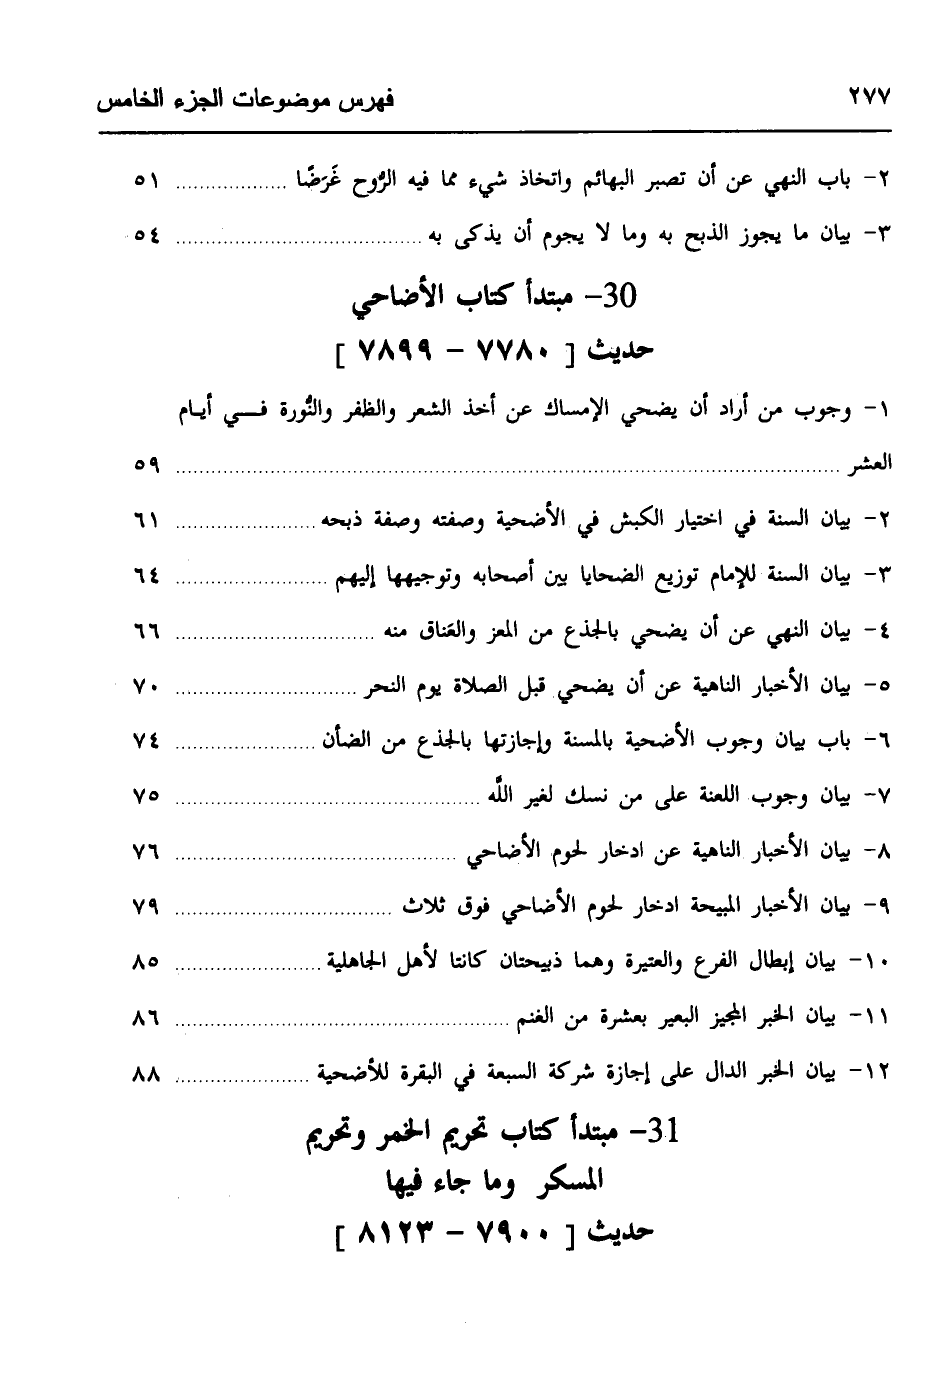 ٢٧٧ فهرس موضوعات الجزء الخامس
٢- باب النهي عن أن تصبر البهائم واتخاذ شيء مما فيه الرُّوح غَرَضًا ................... ٥١
٣- بيان ما يجوز الذبح به وما لا يجوم أن يذكى به ......................................... ٥٤
30- مبتدأ كتاب الأضاحي
حديث [ ٧٧٨٠ - ٧٨٩٩ ]
١- وجوب من أراد أن يضحي الإمساك عن أخذ الشعر والظفر والنُّورة فــي أيـام
العشر ................................................................................ ٥٩
٢- بيان السنة في اختيار الكبش في الأضحية وصفته وصفة ذبحه ........................ ٦١
٣- بيان السنة للإمام توزيع الضحايا بين أصحابه وتوجيهها إليهم .......................... ٦٤
٤- بيان النهي عن أن يضحي بالجذع من المعز والعَناق منه .................................. ٦٦
٥- بيان الأخبار الناهية عن أن يضحي قبل الصلاة يوم النحر ............................... ٧٠
٦- باب بيان وجوب الأضحية بالمسنة وإجازتها بالجذع من الضأن ........................ ٧٤
٧- بيان وجوب اللعنة على من نسك لغير اللَّه .................................................... ٧٥
٨- بيان الأخبار الناهية عن ادخار لحوم الأضاحي ................................................ ٧٦
٩- بيان الأخبار المبيحة ادخار لحوم الأضاحي فوق ثلاث ..................................... ٧٩
١٠- بيان إبطال الفرع والعتيرة وهما ذبيحتان كانتا لأهل الجاهلية ......................... ٨٥
١١- بيان الخبر المجيز البعير بعشرة من الغنم ......................................................... ٨٦
١٢- بيان الخبر الدال على إجازة شركة السبعة في البقرة للأضحية ....................... ٨٨
31- مبتدأ كتاب تحريم الخمر وتحريم
المسكر وما جاء فيها
حديث [ ٧٩٠٠ - ٨١٢٣ ]